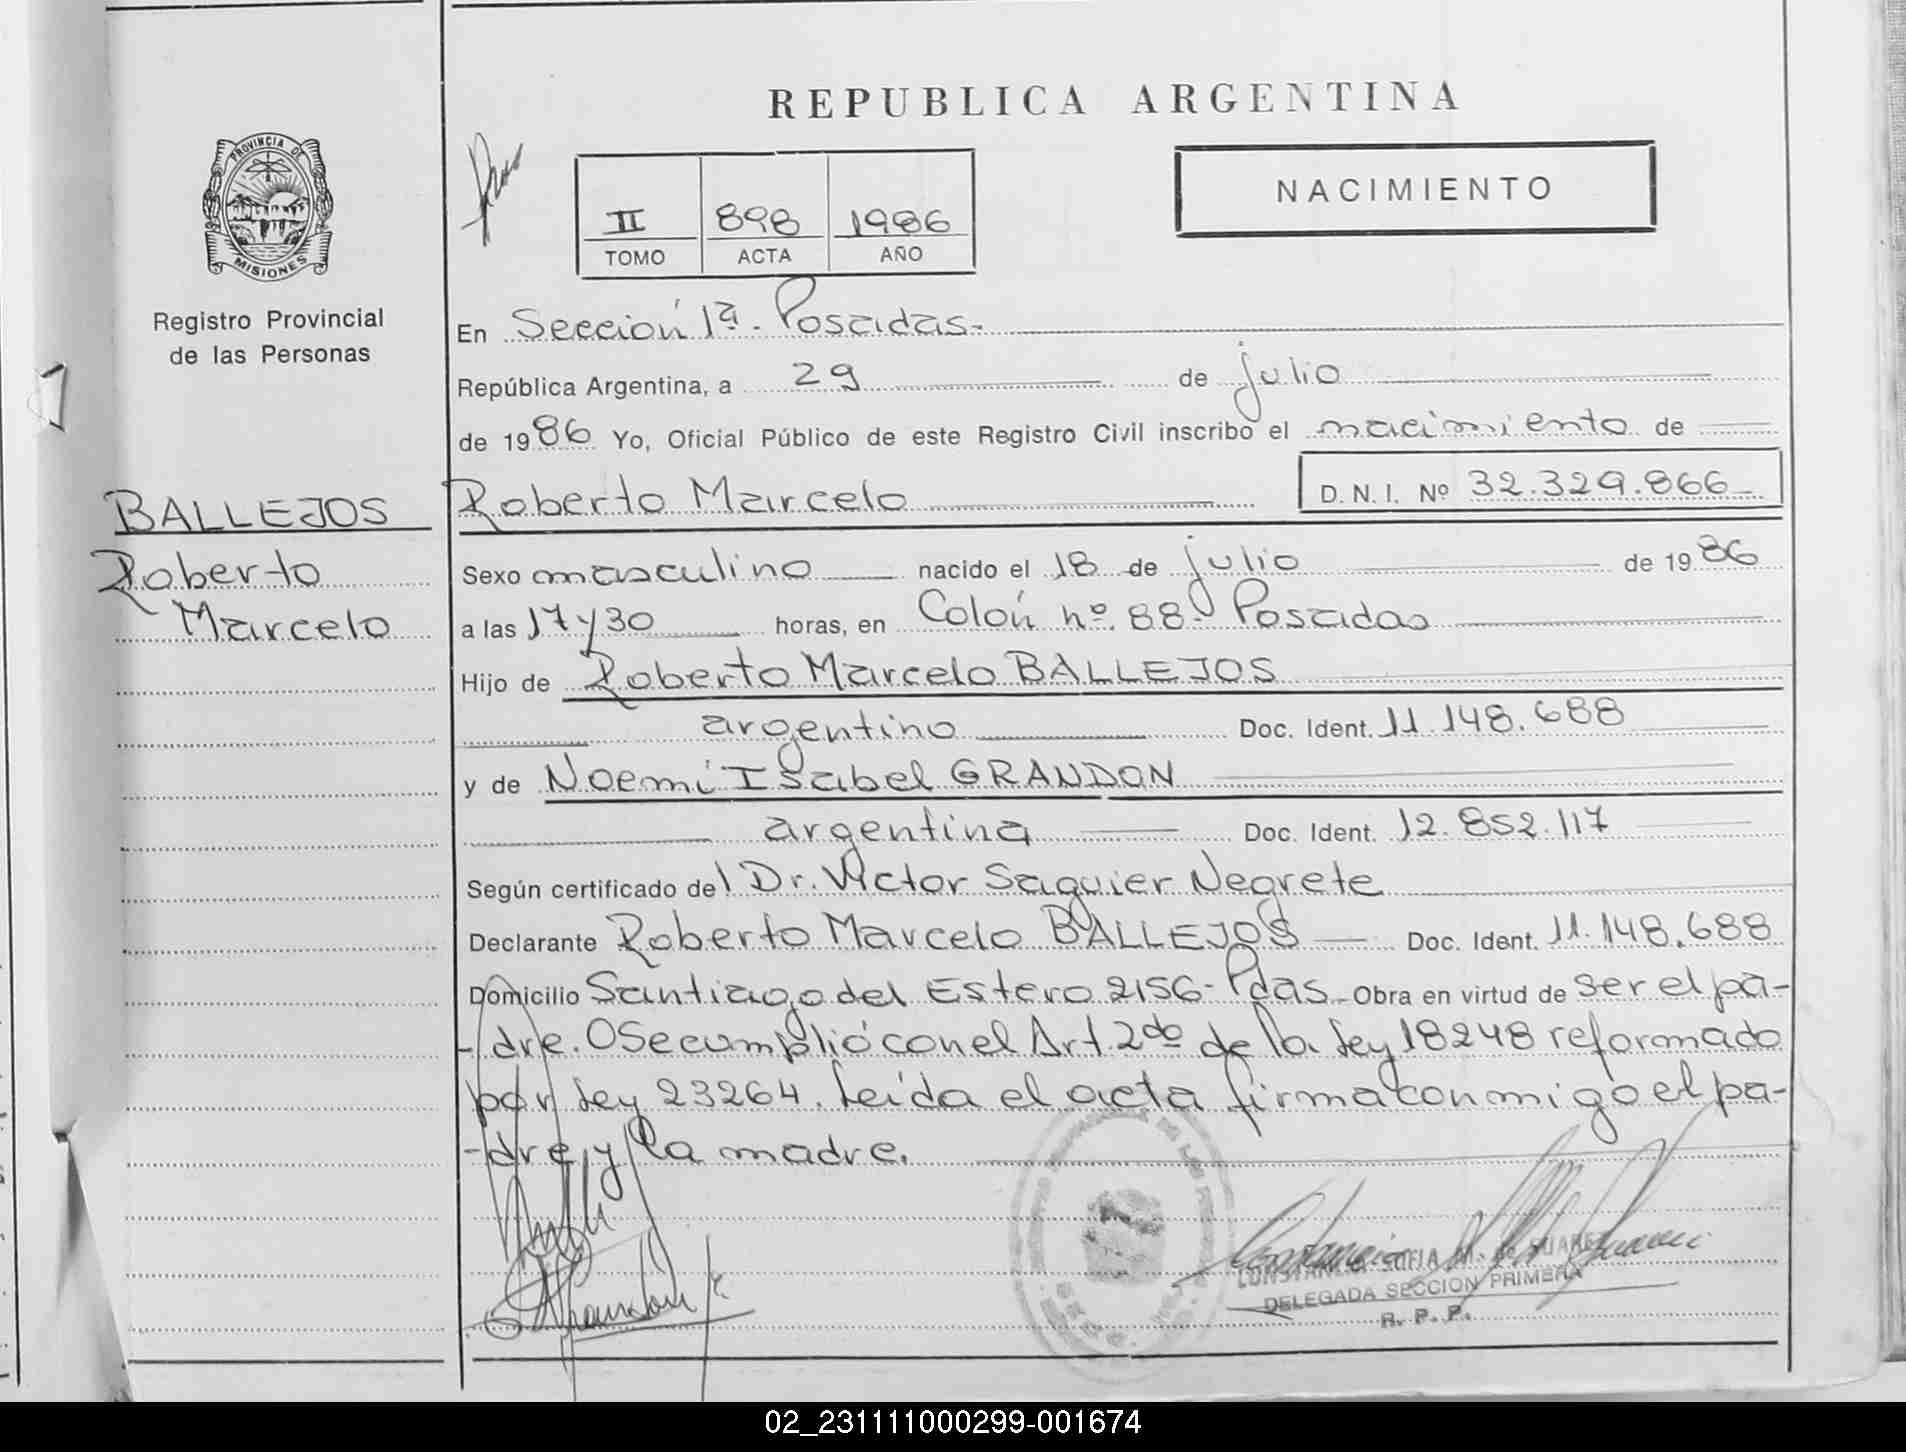 REPUBLICA ARGENTINA
PROVINCIA DE
MISIONES
Registro Provincial
de las Personas
II 898 1986
TOMO ACTA AÑO
NACIMIENTO
En Sección 1ª. Posadas.
República Argentina, a 29 de julio
de 1986 Yo, Oficial Público de este Registro Civil inscribo el nacimiento de
BALLEJOS
Roberto
Marcelo
Roberto Marcelo D.N.I. Nº 32.329.866
Sexo masculino nacido el 18 de julio de 1986
a las 17 y 30 horas, en Colón nº. 88. Posadas
Hijo de Roberto Marcelo BALLEJOS
argentino Doc. Ident. 11.148.688
y de Noemí Isabel GRANDON
argentina Doc. Ident. 12.852.117
Según certificado del Dr. Victor Saguier Negrete
Declarante Roberto Marcelo BALLEJOS Doc. Ident. 11.148.688
Domicilio Santiago del Estero 2156- Pdas. Obra en virtud de ser el pa-
-dre. Se cumplió con el Art 2do de la Ley 18248 reformado
por Ley 23264. Leída el acta firma conmigo el pa-
-dre y la madre.
DE SUAREZ
DELEGADA SECCION PRIMERA
R. P. P.
02_231111000299-001674